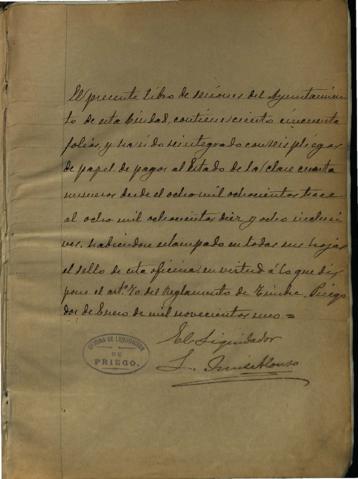 El presente libro de sesiones del Ayuntamien-
to de esta Ciudad, contiene ciento cincuenta
folios, y ha sido reintegrado con seis pliegos
de papel de pagos al Estado de la clase cuarta
numeros desde el ocho mil ochocientos trece
al ocho mil ochocientos diez y ocho inclusi-
ves, habiendose estampado en todas sus hojas
el sello de esta oficina en virtud á lo que dis-
pone el artº 70 del Reglamento de Timbre. Priego
dos de Enero de mil novecientos uno =
El Liquidador
OFICINA DE LIQUIDACION
DE
PRIEGO.
Alonso